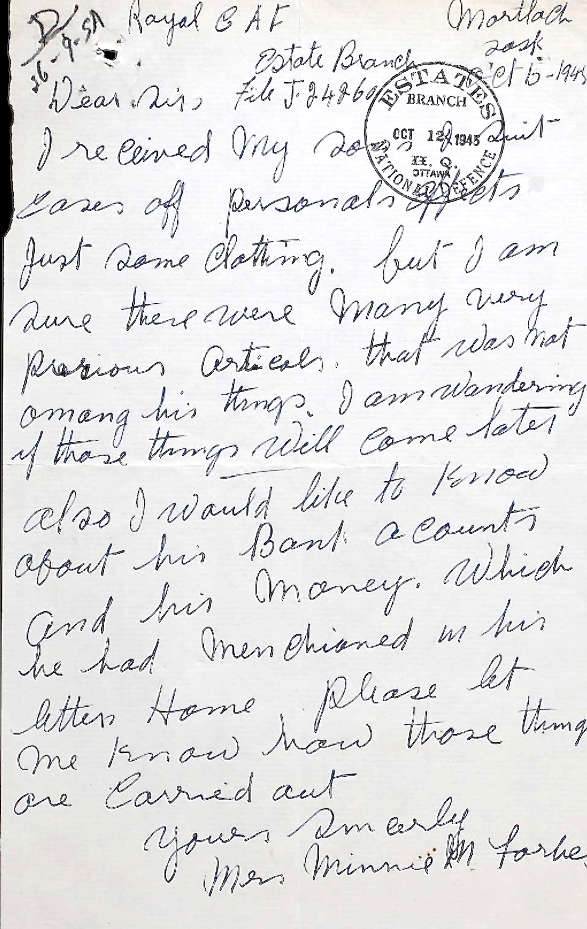 Royal C A F
Mortlach
Sask
Estate Branch
Oct 6-1945
26-9-
Dear Sirs File J.24260
ESTATES
BRANCH
OCT 12 1945
H. Q.
OTTAWA
NATIONAL DEFENCE
I received My sons 2 suit
cases off personals effects
Just some Clothing. but I am
sure there were Many very
precious Articals. that was not
among his things. I am wandering
if those things will come later
also I would like to Know
about his Bank acounts
and his Money. Which
he had Menchioned in his
letters Home please let
me Know how those things
are Carried out
Yours Sincerly
Mrs Minnie M Forbes